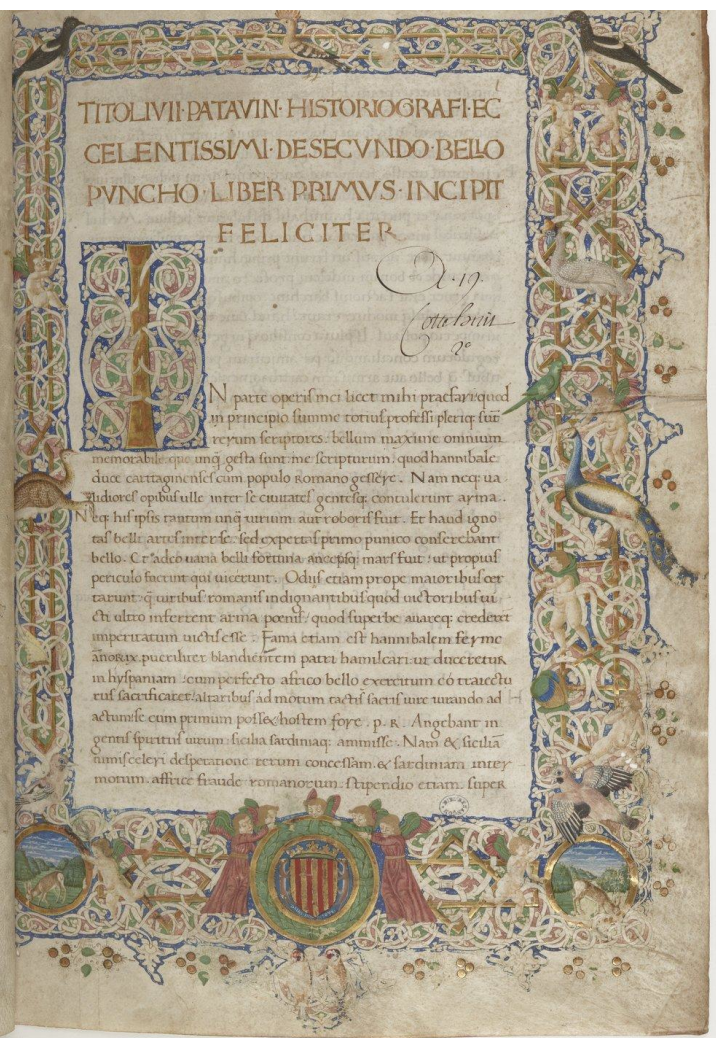 TITOLIVII·PATAVIN·HISTORIOGRAFI·EC
CELENTISSIMI·DESECVNDO·BELLO
PVNCHO·LIBER PRIMVS·INCIPIT
FELICITER
19.
2º
IN parte operis mei licet mihi praefari: quod
in principio summe totius professi pleriq; sūt
rerum scriptores. bellum maxime omnium
memorabile. que unq̄ gesta sunt me scripturum. quod hannibale
duce cartaginenses cum populo romano gessere. Nam neq; ua
lidiores opibus ulle inter se ciuitates gentesq; contulerunt arma.
Neq; his ipsis tantum unq̄ uirium aut roboris fuit. Et haud igno
tas belli artes inter se: sed expertas primo punico conserebant
bello. Et adeo uaria belli fortuna ancepsq; mars fuit: ut propius
periculo fuerint qui uicerunt. Odijs etiam prope maioribus cer
tarunt: q̄ uiribus romanis indignantibus quod uictoribus ui
cti ultro inferrent arma poenis: quod superbe auareq; crederēt
imperitatum uictis esse. Fama etiam est hannibalem ferme
annorum pueriliter blandientem patri hamilcari: ut duceretur
in hyspaniam: cum perfecto africo bello exercitum eó traiectu
rus sacrificaret: altaribus ad motum tactis sacris iure iurando ad
actum: se cum primum posset hostem fore. p. R. Angebant in
gentis spiritus uirum: sicilia sardiniaq; ammisse. Nam & siciliā
nimis celeri desperatione rerum concessam. & sardiniam inter
motum. affrice fraude romanorum. stipendio etiam super